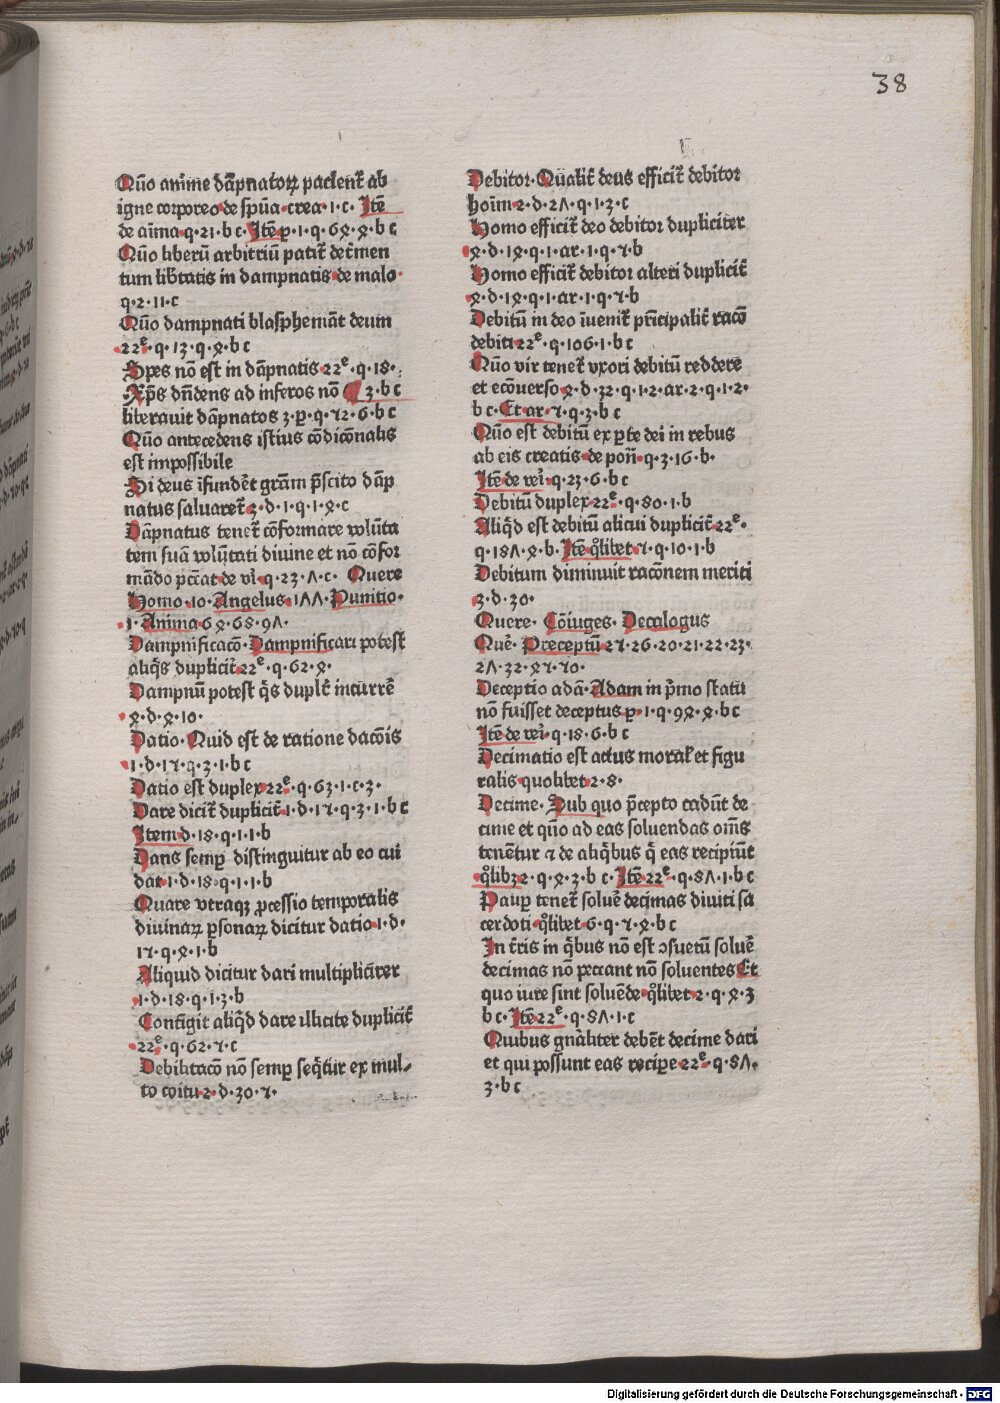 38
Qūo anime dāpnatoꝝ pacient᷑ ab
igne corporeo de spūa crea·1·c· Itē
de aīma·q·21·b c·Itē p̲·1·q·64·4·b c
Qūo liberū arbitriū patit᷑ det᷑men
tum lib᷑tatis in dampnatis·de malo·
q·2·11·c
Qūo dampnati blasphemāt deum
22ͤ·q·13·q·4·b c
Spes nō est in dāpnatis·22ͤ·q·18·
Xp̄s dn̄dens ad inferos nō ¶ 3·b c
liberauit dāpnatos·3·p̲·q·52·6·b c
Qūo antecedens istius cōdicōnalis
est impossibile
Si deus īfundēt grām p̄scito dāp
natus saluaret᷑·3·d·1·q·1·4·c
Dāpnatus tenet᷑ cōformare volūta
tem suā volūtati diuine et nō cōfor
mādo pc̄cat·de vi᷑·q·23·7·c· Quere
Homo·10·Angelus·177·Punitio·
1·Anima·64·68·97·
Dampnificacō·Dampnificari potest
aliq̄s duplicit᷑·22ͤ·q·62·4·
Dampnū potest q̄s duplr̄ incurrē
4·d·4·10·
Datio·Quid est de ratione dacōis
1·d·15·q·3·1·b c
Datio est duplex·22ͤ·q·63·1·c·3·
Dare dicit᷑ duplicit᷑·1·d·15·q·3·1·b c
Item·d·18·q·1·1·b
Dans semp̲ distinguitur ab eo cui
dat·1·d·18·q·1·1·b
Quare vtraqꝫ ꝓcessio temporalis
diuinaꝝ p̲sonaꝝ dicitur datio·1·d·
15·q·4·1·b
Aliquid dicitur dari multiplicit᷑er
1·d·18·q·1·3·b
Contīgit aliq̄d dare illicite duplicit᷑
22ͤ·q·62·5·c
Debilitacō nō semp̲ seq̄tur ex mul⸗
to coitu·2·d·30·5·
Debitor·Qualit᷑ deus efficit᷑ debitor
hoīm·2·d·27·q·1·3·c
Homo efficit᷑ deo debitor dupliciter
4·d·14·q·1·ar·1·q·5·b
Homo efficit᷑ debitor alteri duplicit᷑
4·d·14·q·1·ar·1·q·5·b
Debitū in deo īuenit᷑ pr̄ncipalit᷑ racō
debiti·22ͤ·q·106·1·b c
Qūo vir tenet᷑ vxori debitū reddere
et ecōuerso·4·d·32·q·1·2·ar·2·q·1·2·
b c·Et ar·5·q·3·b c
Qūo est debitū ex p̲te dei in rebus
ab eis creatis·de pon̄·q·3·16·b·
Itē de vei᷑·q·23·6·b c
Debitū duplex·22ͤ·q·80·1·b
Aliq̄d est debitū alicui duplicit᷑·22ͤ·
q·187·4·b·Itē q̊libet·5·q·10·1·b
Debitum diminuit racōnem meriti
3·d·30·
Quere·Cōiuges·Decalogus
Quē·Preceptū·25·26·20·21·22·23·
27·32·45·50·
Deceptio adā·Adam in p̄mo statu
nō fuisset deceptus·p̲·1·q·94·4·b c
Itē de vei᷑·q·18·6·b c
Decimatio est actus moral᷑ et figu
ralis·quolibet·2·8·
Decime·Sub quo p̄cepto cadūt de
cime et qūo ad eas soluendas om̄s
tenētur ⁊ de aliq̄bus q̄ eas recipiūt
q̊libꝫ·2·q·4·3·b c·Itē·22ͤ·q·87·1·b c
Paup̲ tenet᷑ soluē decimas diuiti sa
cerdoti·q̊libet·6·q·5·4·b c
In t᷑ris in q̄bus nō est ↄsuetū soluē
decimas nō peccant nō soluentes·Et
quo iure sint soluēde·q̊libet·2·q·4·3
b c·Itē·22ͤ·q·87·1·c
Quibus gn̄aliter debēt decime dari
et qui possunt eas recip̲e·22ͤ·q·87·
3·b c
Digitalisierung gefördert durch die Deutsche Forschungsgemeinschaft - DFG